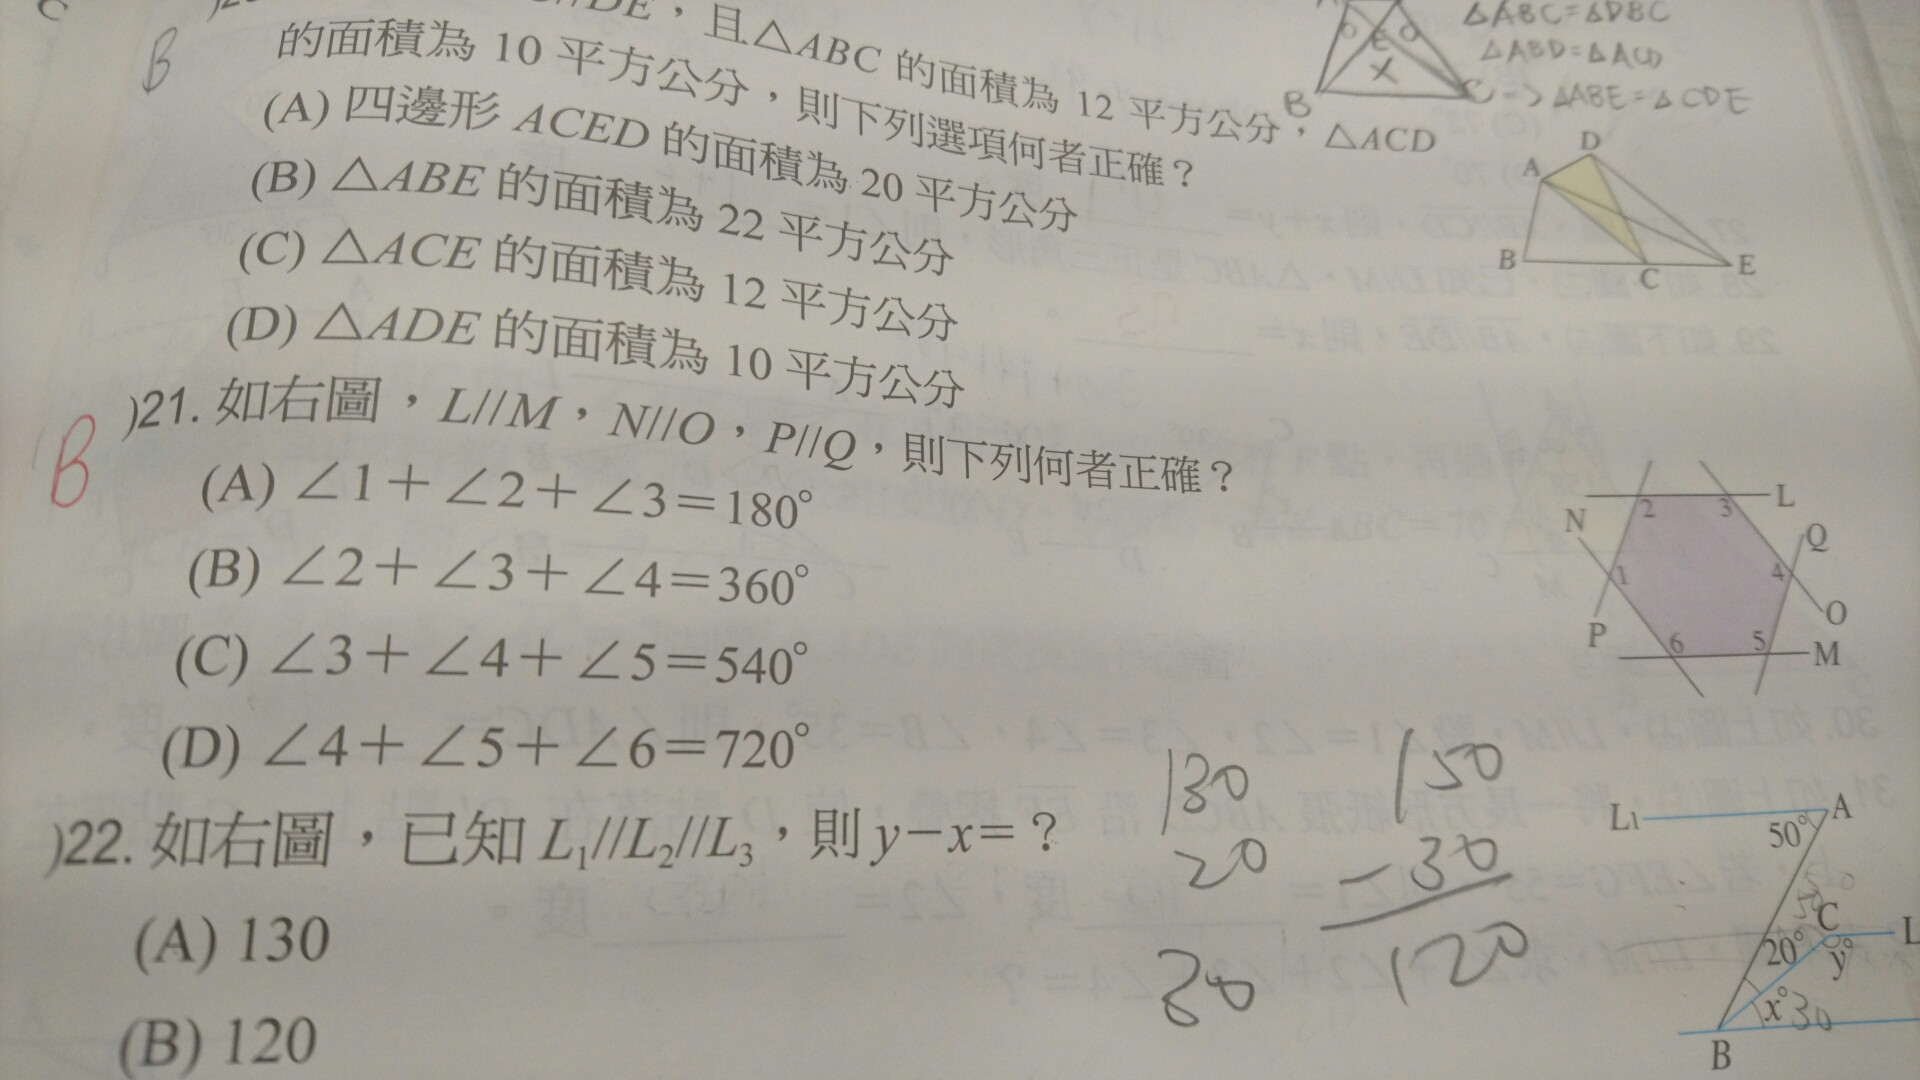 //DE，且△ABC 的面積為 12 平方公分，△ACD
的面積為 10 平方公分，則下列選項何者正確？
(A) 四邊形 ACED 的面積為 20 平方公分
(B) △ABE 的面積為 22 平方公分
(C) △ACE 的面積為 12 平方公分
(D) △ADE 的面積為 10 平方公分
B
△ABC=△DBC
△ABD=△ACD
-> △ABE=△CDE
B
C
E
X
A
D
B
C
E
B
)21. 如右圖，L//M，N//O，P//Q，則下列何者正確？
(A) ∠1+∠2+∠3=180°
(B) ∠2+∠3+∠4=360°
(C) ∠3+∠4+∠5=540°
(D) ∠4+∠5+∠6=720°
L
N
2
3
Q
1
4
P
O
6
5
M
)22. 如右圖，已知 L₁//L₂//L₃，則 y－x=？
(A) 130
(B) 120
130
20
30
150
-30
120
L1
A
50°
50
C
L
20°
y°
x°
30
B